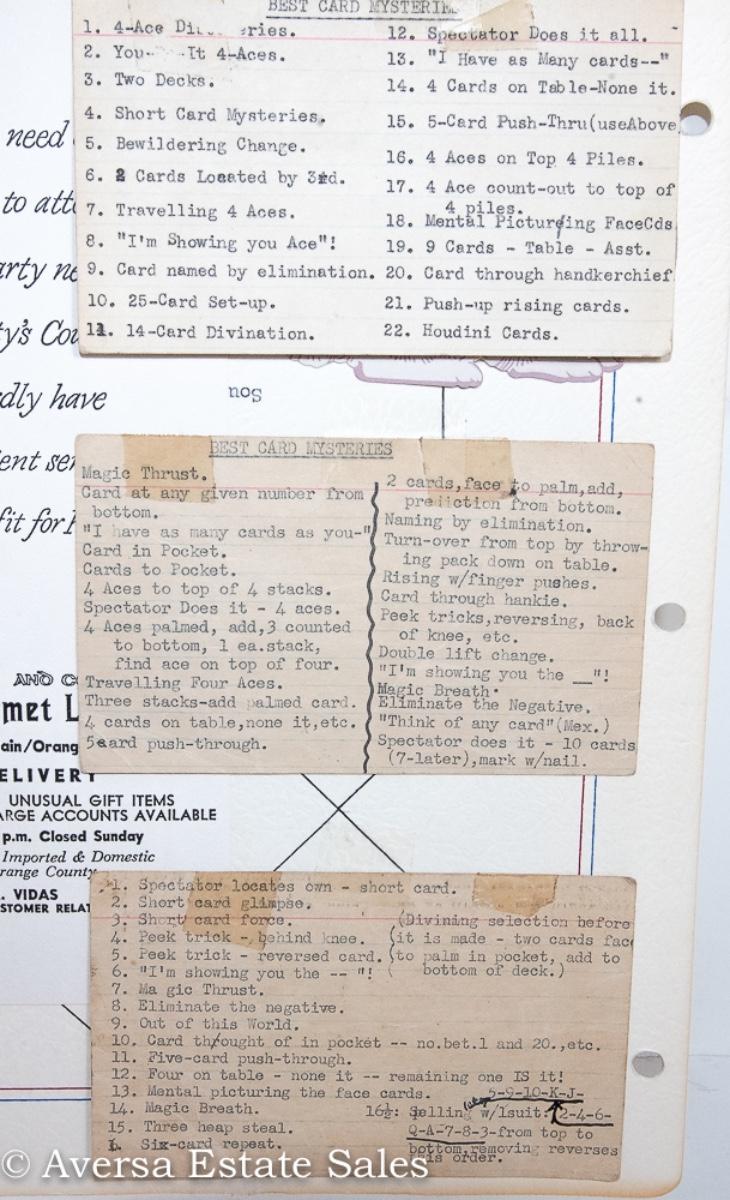 BEST CARD MYSTERIES
1. 4-Ace
2. You- It 4-Aces.
3. Two Decks.
4. Short Card Mysteries.
5. Bewildering Change.
6. 2 Cards Located by 3rd.
7. Travelling 4 Aces.
8. "I'm Showing you Ace"!
9. Card named by elimination.
10. 25-Card Set-up.
11. 14-Card Divination.
12. Spectator Does it all.
13. "I Have as Many cards--"
14. 4 Cards on Table-None it.
15. 5-Card Push-Thru(useAbove
16. 4 Aces on Top 4 Piles.
17. 4 Ace count-out to top of
4 piles.
18. Mental Picturing FaceCds
19. 9 Cards - Table - Asst.
20. Card through handkerchief
21. Push-up rising cards.
22. Houdini Cards.
need
to att
arty ne
ty's Cou
dly have
ient ser
fit for
Son
BEST CARD MYSTERIES
Magic Thrust.
Card at any given number from
bottom.
"I have as many cards as you-"
Card in Pocket.
Cards to Pocket.
4 Aces to top of 4 stacks.
Spectator Does it - 4 aces.
4 Aces palmed, add,3 counted
to bottom, 1 ea.stack,
find ace on top of four.
Travelling Four Aces.
Three stacks-add palmed card.
4 cards on table,none it,etc.
5card push-through.
2 cards,face to palm,add,
prediction from bottom.
Naming by elimination.
Turn-over from top by throw-
ing pack down on table.
Rising w/finger pushes.
Card through hankie.
Peek tricks,reversing, back
of knee, etc.
Double lift change.
"I'm showing you the __"!
Magic Breath.
Eliminate the Negative.
"Think of any card"(Mex.)
Spectator does it - 10 cards
(7-later),mark w/nail.
AND CO
met L
ain/Orang
DELIVERY
UNUSUAL GIFT ITEMS
ARGE ACCOUNTS AVAILABLE
p.m. Closed Sunday
Imported & Domestic
range County
. VIDAS
STOMER RELAT
1. Spectator locates own - short card.
2. Short card glimpse.
3. Short card force.
4. Peek trick - behind knee.
5. Peek trick - reversed card.
6. "I'm showing you the -- "!
(Divining selection before
it is made - two cards face
to palm in pocket, add to
bottom of deck.)
7. Ma gic Thrust.
8. Eliminate the negative.
9. Out of this World.
10. Card thought of in pocket -- no.bet.1 and 20.,etc.
11. Five-card push-through.
12. Four on table - none it -- remaining one IS it!
13. Mental picturing the face cards.
14. Magic Breath.
15. Three heap steal.
16. Six-card repeat.
5-9-10-K-J-
16½: Spelling w/1suit: 2-4-6-
Q-A-7-8-3-from top to
bottom,removing reverses
this order.
© Aversa Estate Sales